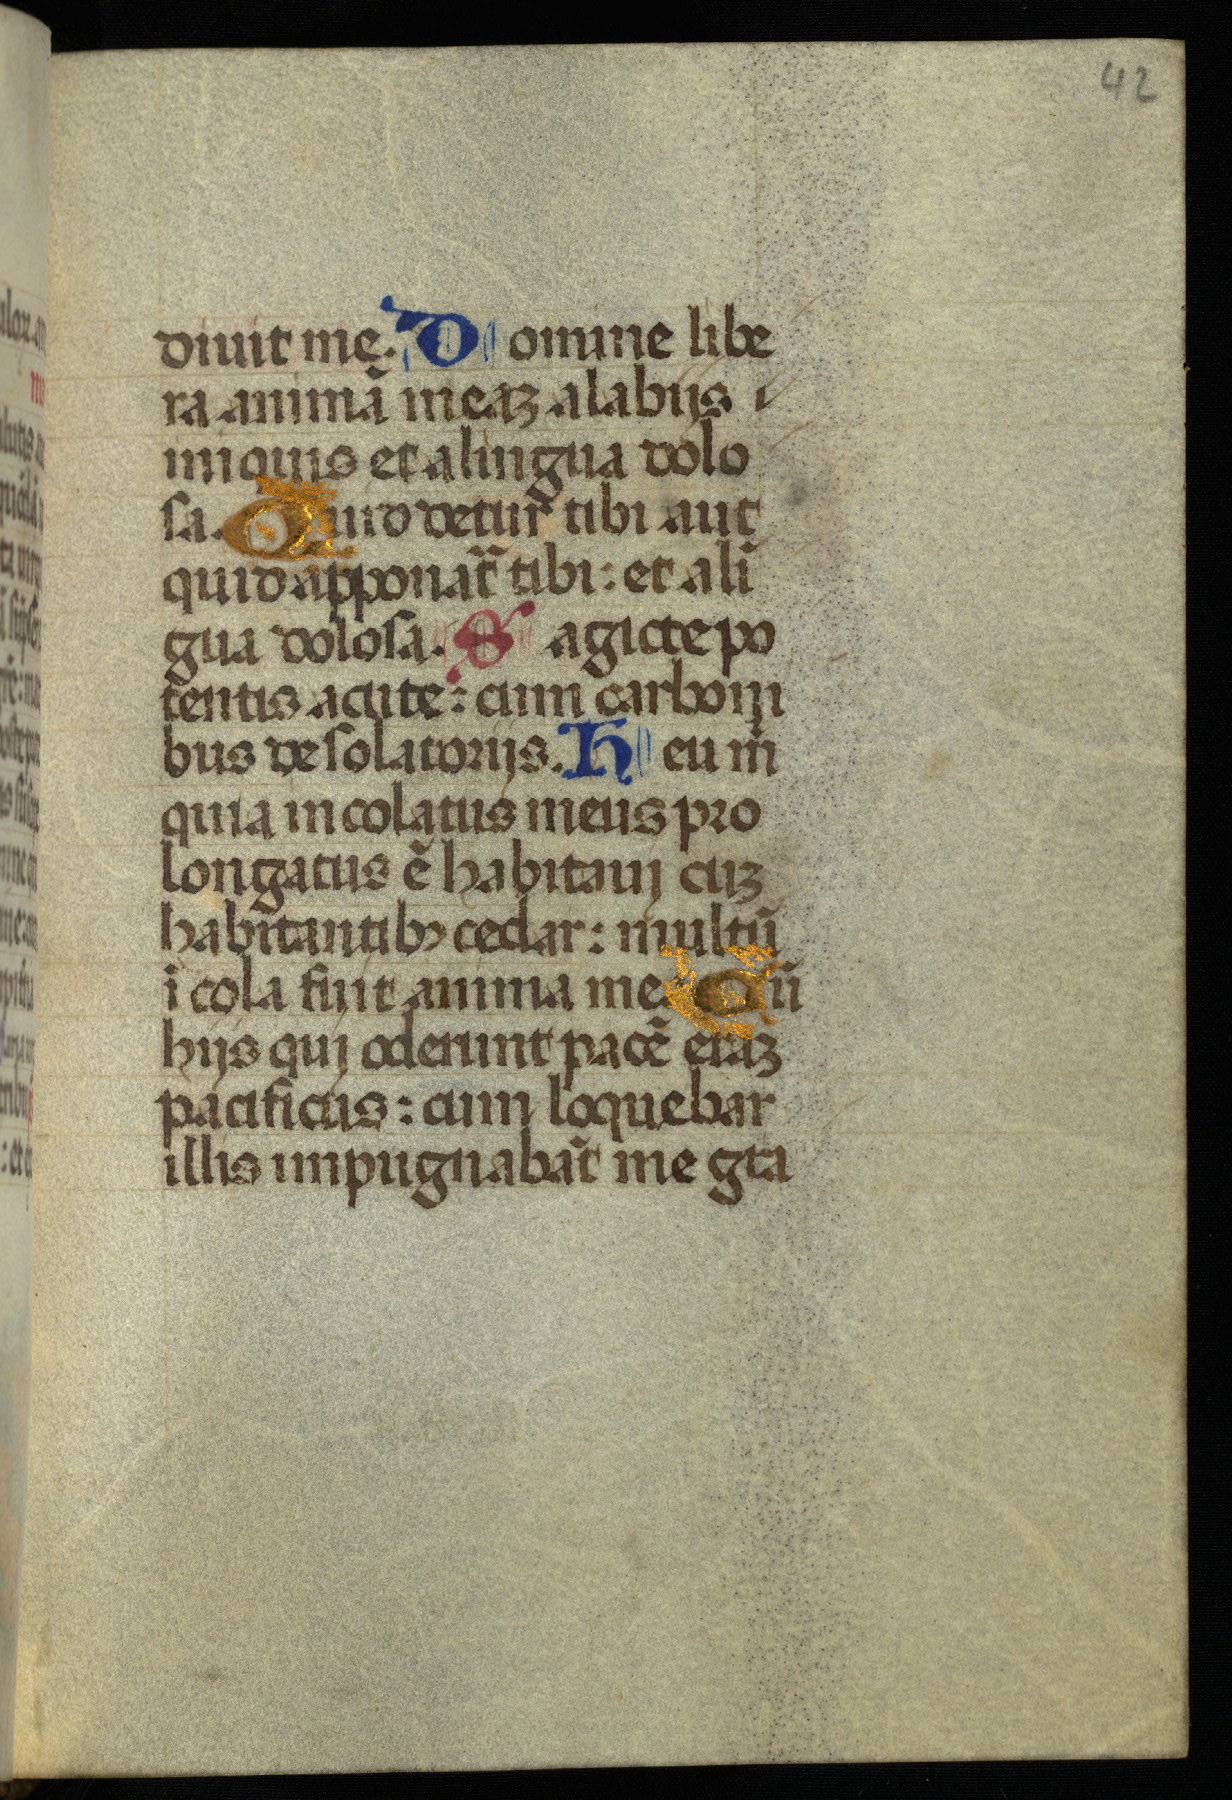 42
diuit me. Domine libe
ra animã meaʒ a labijs
iniquis et a lingua dolo
sa. Quid detur̃ tibi aut
quid apponat̃ tibi: et a lĩ
gua dolosa. Sagicte po
tentis acute: cum carboni
bus desolatorijs. Heu m̃
quia incolatus meus pro
longatus ẽ habitaui cuʒ
habitantibꝫ cedar: multũ
ĩcola fuit anima me. Cũ
hijs qui oderunt pacẽ eraʒ
pacificus: cum loquebar
illis impugnabãt me gta